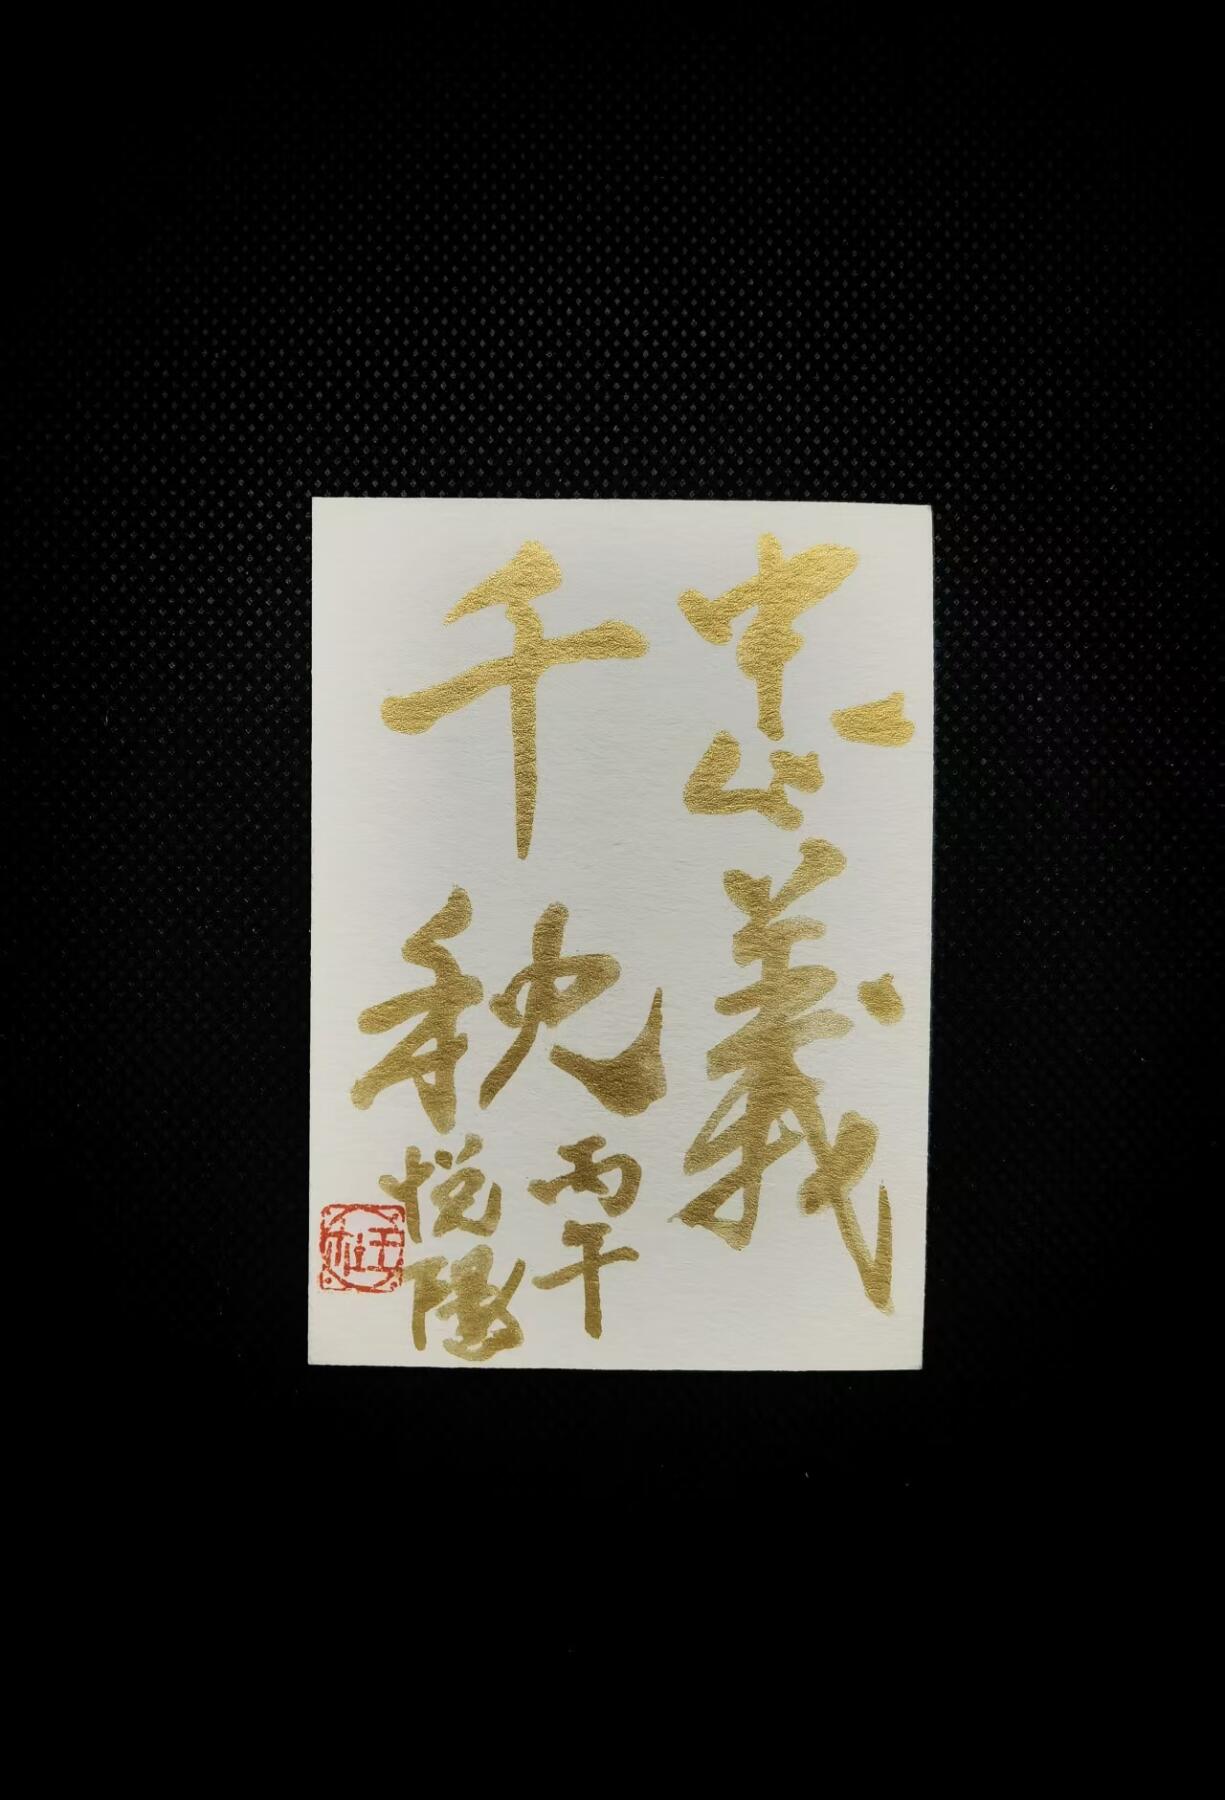 忠義
千秋
丙午
悦陽